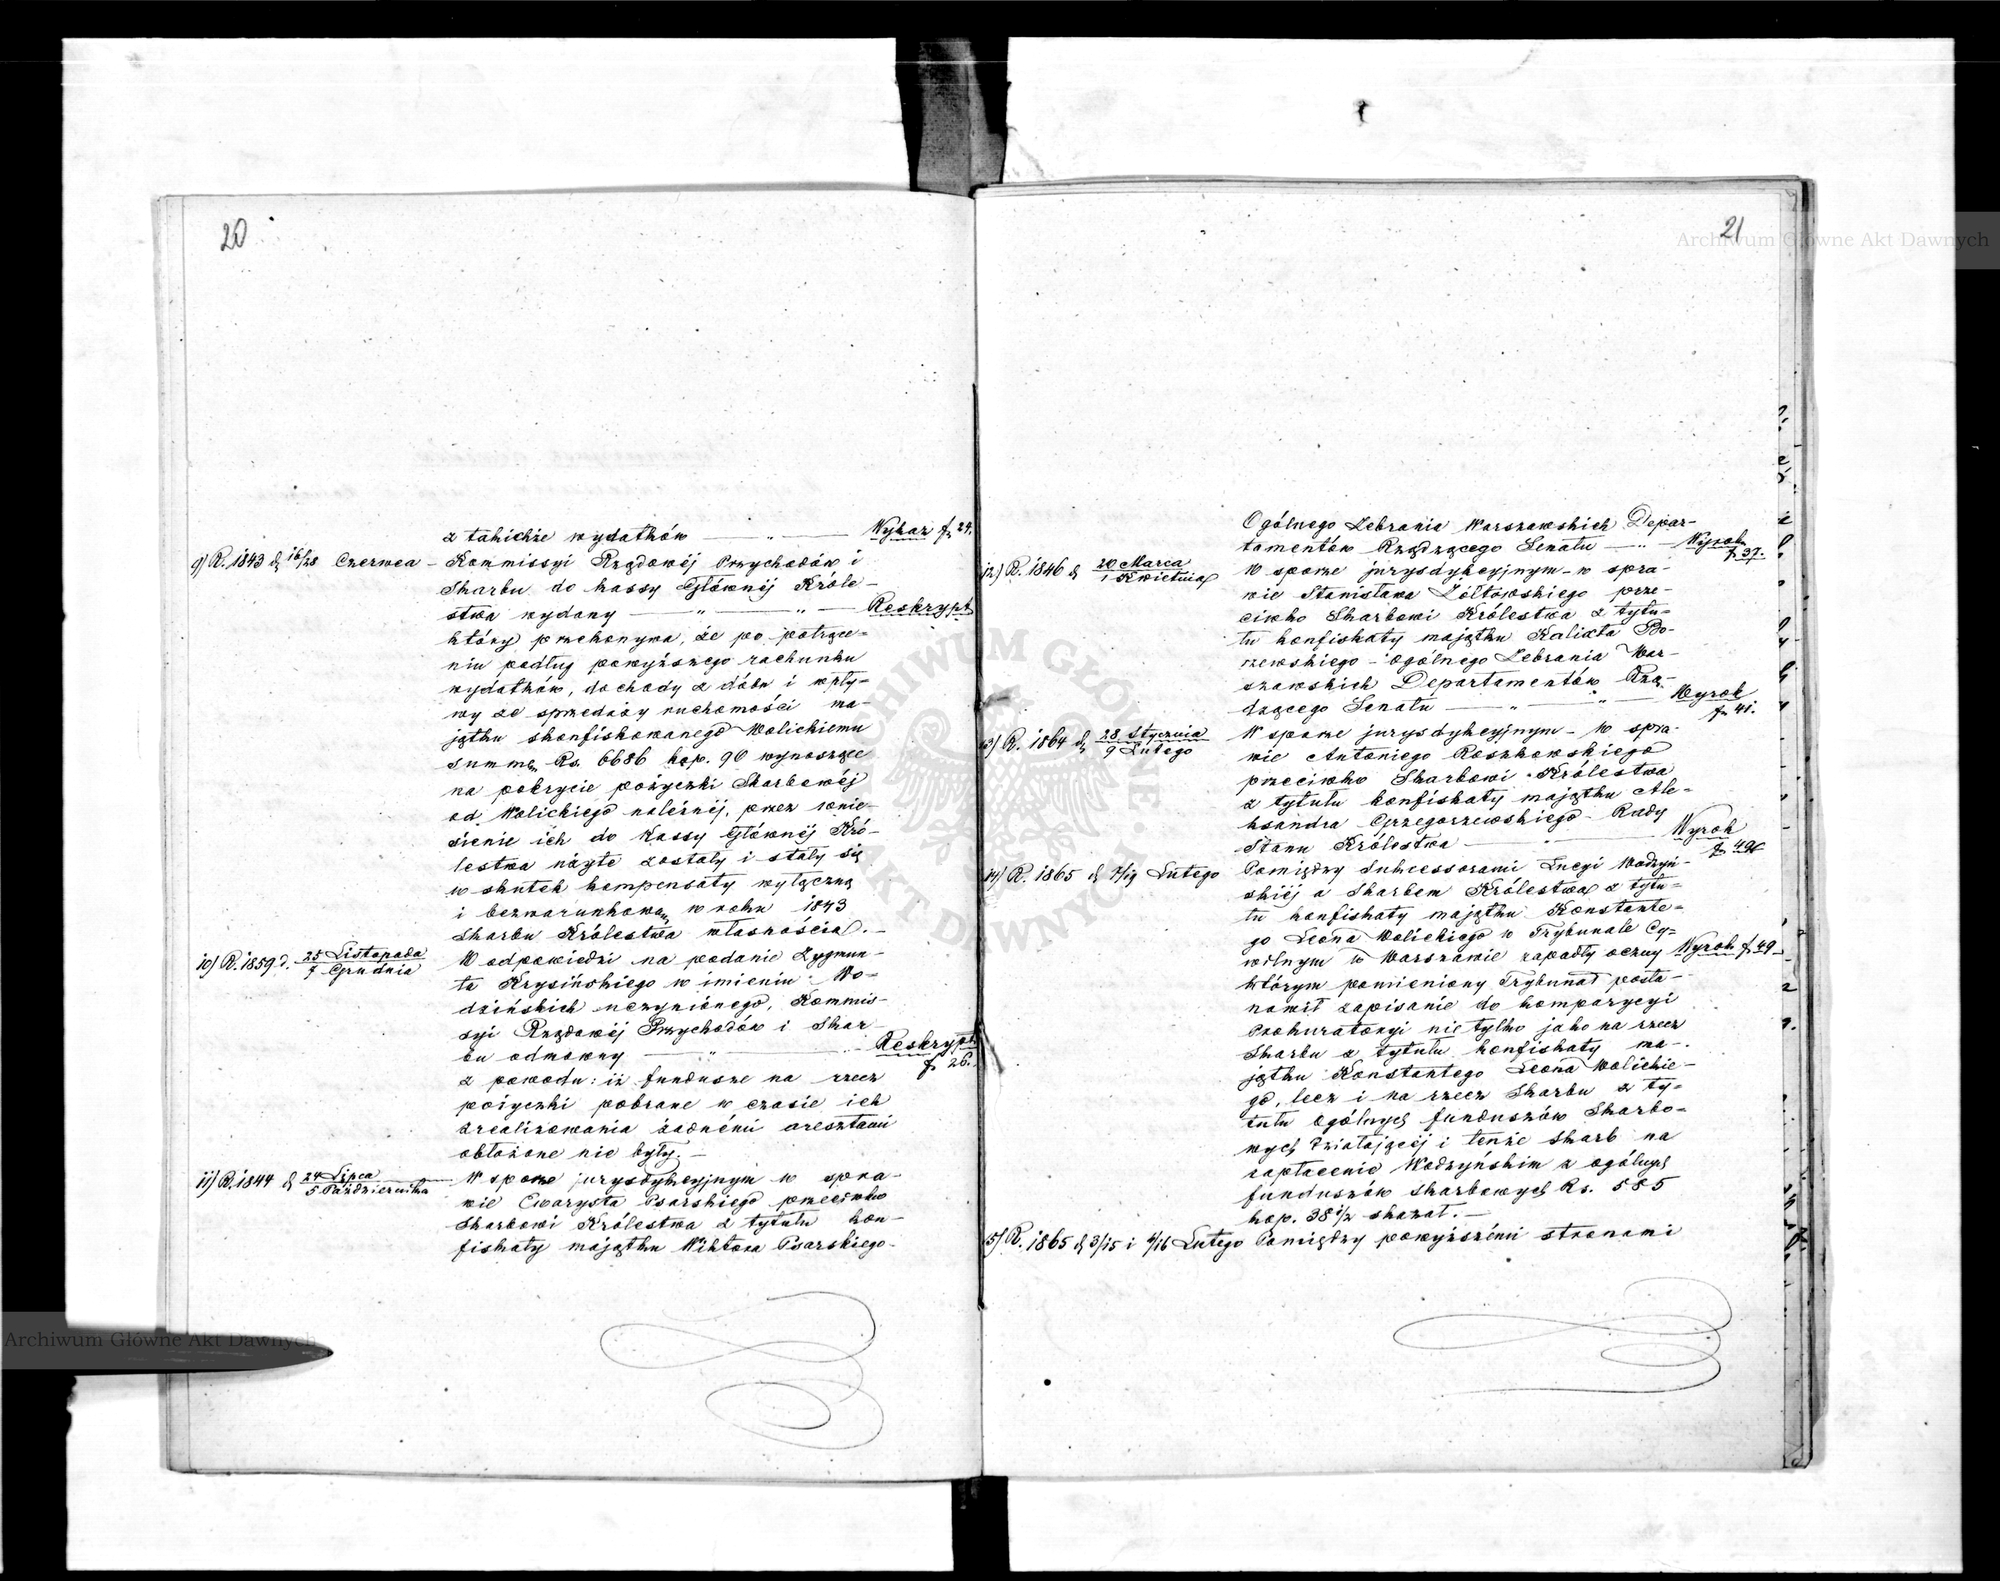 20
z takichże wydatków — " — Wykaz f. 24.
9) R. 1843 d. 16/28 Czerwca – Kommissyi Rządowéj Przychodów i
Skarbu do kassy Głównéj Króle-
stwa wydany — " — " — Reskrypt
który przekonywa, że po potrące-
niu podług powyższego rachunku
wydatków, dochody z dóbr i wpły-
wy ze sprzedaży ruchomości ma-
jątku skonfiskowanego Wolickiemu
summę Rs. 6686 kop. 90 wynoszące
na pokrycie pożyczki Skarbowéj
od Wolickiego należnéj, przez wnie-
sienie ich do Kassy Głównéj Kró-
lestwa użyte zostały i stały się
w skutek kompensaty wyłączną
i bezwarunkową w roku 1843
Skarbu Królestwa własnością. –
10) R. 1859 d. 25 Listopada / 7 Grudnia W odpowiedzi na podanie Zygmun-
ta Krysińskiego w imieniu Wo-
dzińskich uczynionego, Kommis-
syi Rządowéj Przychodów i Skar-
bu odmowny — " — Reskrypt
f. 26.
z powodu: iż fundusze na rzecz
pożyczki pobrane w czasie ich
zrealizowania żadnémi aresztami
obłożone nie były. –
11) R. 1844 d. 24 Lipca / 5 Października W sporze jurysdykcyjnym w spra-
wie Ewarysta Psarskiego przeciwko
Skarbowi Królestwa z tytułu kon-
fiskaty majątku Wiktora Psarskiego –
21
Ogólnego Zebrania Warszawskich Depar-
tamentów Rządzącego Senatu — " — Wyrok
f. 37.
12) R. 1846 d. 20 Marca / 1 Kwietnia W sporze jurysdykcyjnym – w spra-
wie Stanisława Żółtowskiego prze-
ciwko Skarbowi Królestwa z tytu-
łu konfiskaty majątku Kalixta Bo-
rzewskiego – Ogólnego Zebrania War-
szawskich Departamentów Rzą-
dzącego Senatu — " — " — Wyrok
f. 41.
13) R. 1864 d. 28 Stycznia / 9 Lutego W sporze jurysdykcyjnym – w spra-
wie Antoniego Roszkowskiego
przeciwko Skarbowi Królestwa
z tytułu konfiskaty majątku Ale-
ksandra Grzegorzewskiego – Rady
Stanu Królestwa — " — Wyrok
14) R. 1865 d. 7/19 Lutego Pomiędzy Sukcessorami Łucyi Wodzyń-
skiéj a Skarbem Królestwa z tytu-
łu konfiskaty majątku Konstante-
go Leona Wolickiego w Trybunale Cy-
wilnym w Warszawie zapadły oczny Wyrok f. 49 –
którym pomieniony Trybunał posta-
nowił zapisanie do komparycyi
Prokuratoryi nie tylko jako na rzecz
Skarbu z tytułu konfiskaty ma-
jątku Konstantego Leona Wolickie-
go, lecz i na rzecz Skarbu z ty-
tułu ogólnych funduszów Skarbo-
wych działającéj i tenże Skarb na
zapłacenie Wodzyńskim z ogólnych
funduszów Skarbowych Rs. 585
kop. 38 1/2 skazał. –
15) R. 1865 d. 3/15 i 4/16 Lutego Pomiędzy powyższémi stronami
Archiwum Główne Akt Dawnych
Archiwum Główne Akt Dawnych